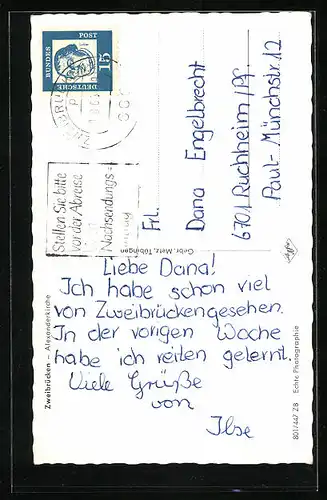 DEUTSCHE
BUNDES
POST
15
Stellen Sie bitte
vor der Abreise
Nachsendungs=
Frl.
Dana Engelbrecht
6701 Ruchheim/Pf.
Paul-Münchstr. 12
Gebr. Metz, Tübingen
Liebe Dana!
Ich habe schon viel
von Zweibrücken gesehen.
In der vorigen Woche
habe ich reiten gelernt.
Viele Grüße
von
Ilse
Zweibrücken – Alexanderkirche
801/447 ZB Echte Photographie